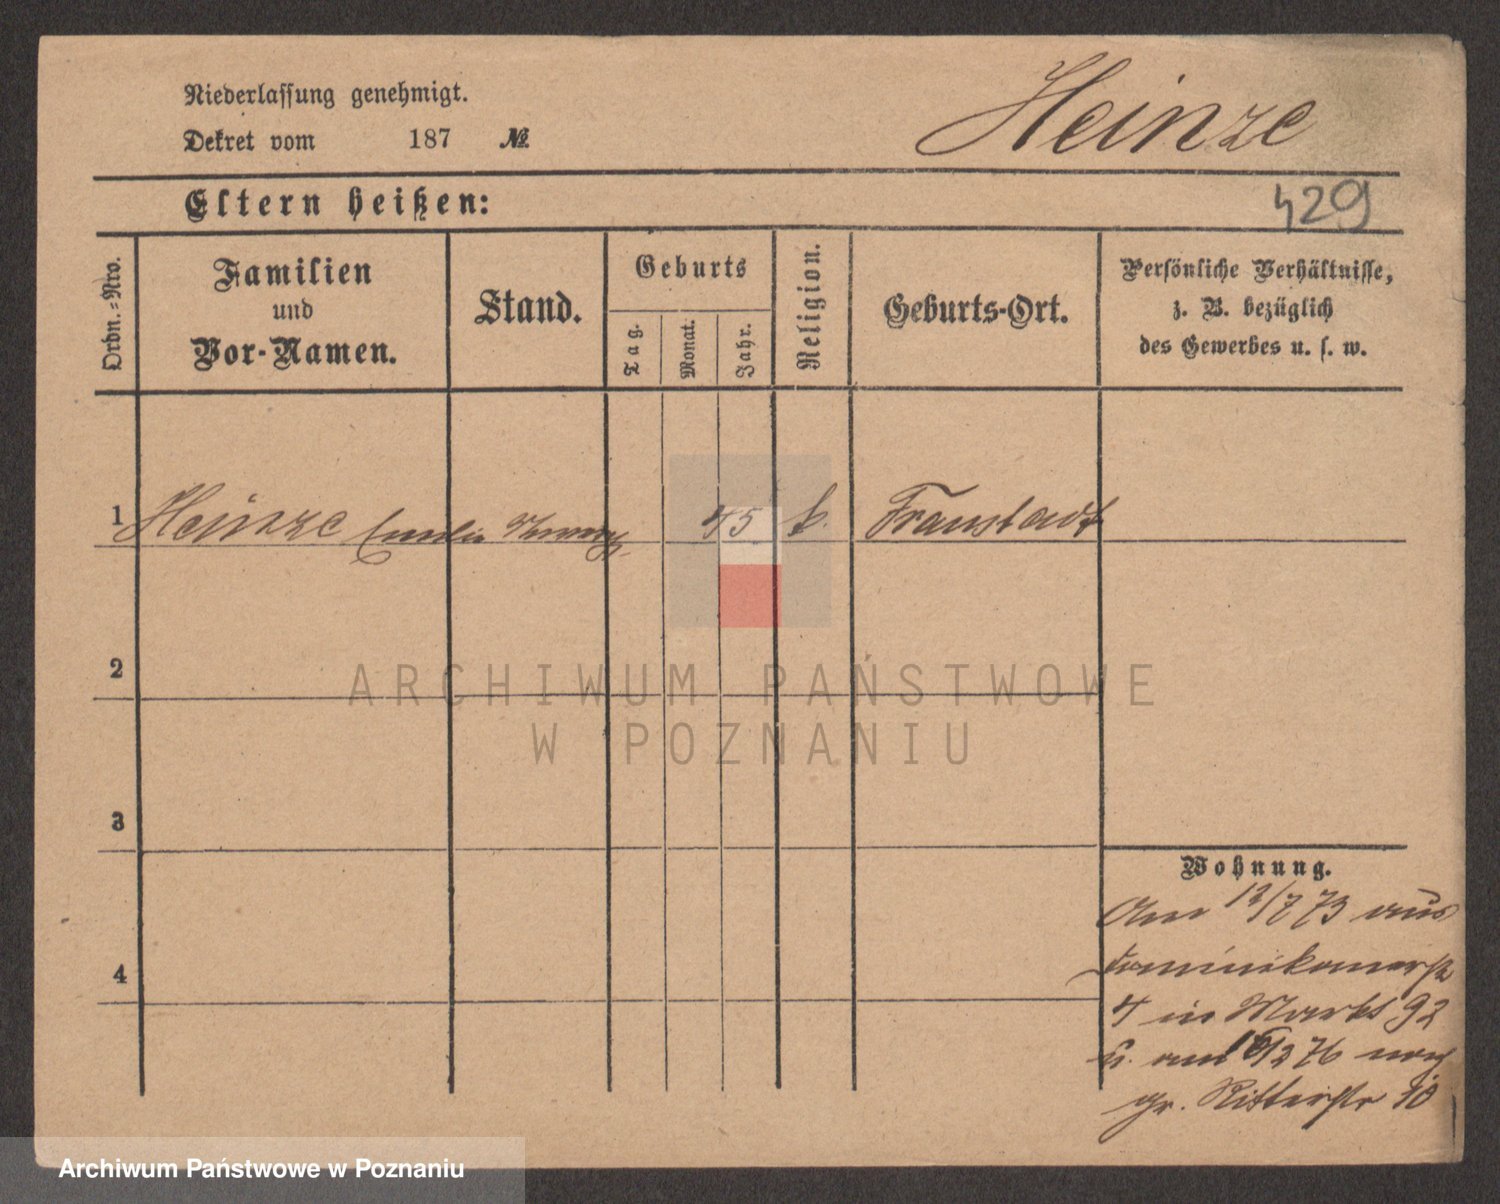 Niederlassung genehmigt.
Heinze
Dekret vom 187 №
Eltern heißen:
429
Ordn.-Nro.
Familien
und
Vor-Namen.
Stand.
Geburts
Tag.
Monat.
Jahr.
Religion.
Geburts-Ort.
Persönliche Verhältnisse,
z. B. bezüglich
des Gewerbes u. s. w.
1 Heinze Emilie 45 k. Fraustadt
2
ARCHIWUM PAŃSTWOWE
W POZNANIU
3
Wohnung.
Am 12/7 73 aus
Dominikanerstr
4
4 in Markt 92
u. am 276 nach
gr. Ritterstr 10
Archiwum Państwowe w Poznaniu